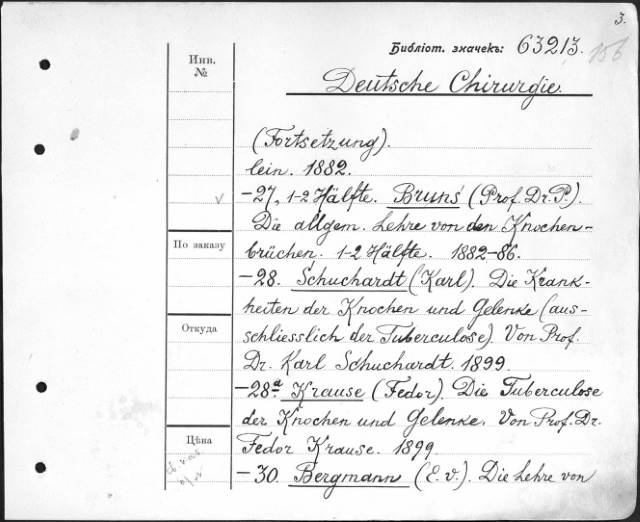 3.
Инв.
№
Библіот. значекъ: 63213.
156
Deutsche Chirurgie.
(Fortsetzung).
lein. 1882.
-27, 1-2 Hälfte. Bruns (Prof. Dr. P.).
Die allgem. Lehre von den Knochen-
brüchen. 1-2 Hälfte. 1882-86.
По заказу
-28. Schuchardt (Karl). Die Krank-
heiten der Knochen und Gelenke (aus-
Откуда
schliesslich der Tuberculose). Von Prof.
Dr. Karl Schuchardt. 1899.
-28a Krause (Fedor). Die Tuberculose
der Knochen und Gelenke. Von Prof. Dr.
Цѣна
Fedor Krause. 1899.
-30. Bergmann (E. v.). Die Lehre von